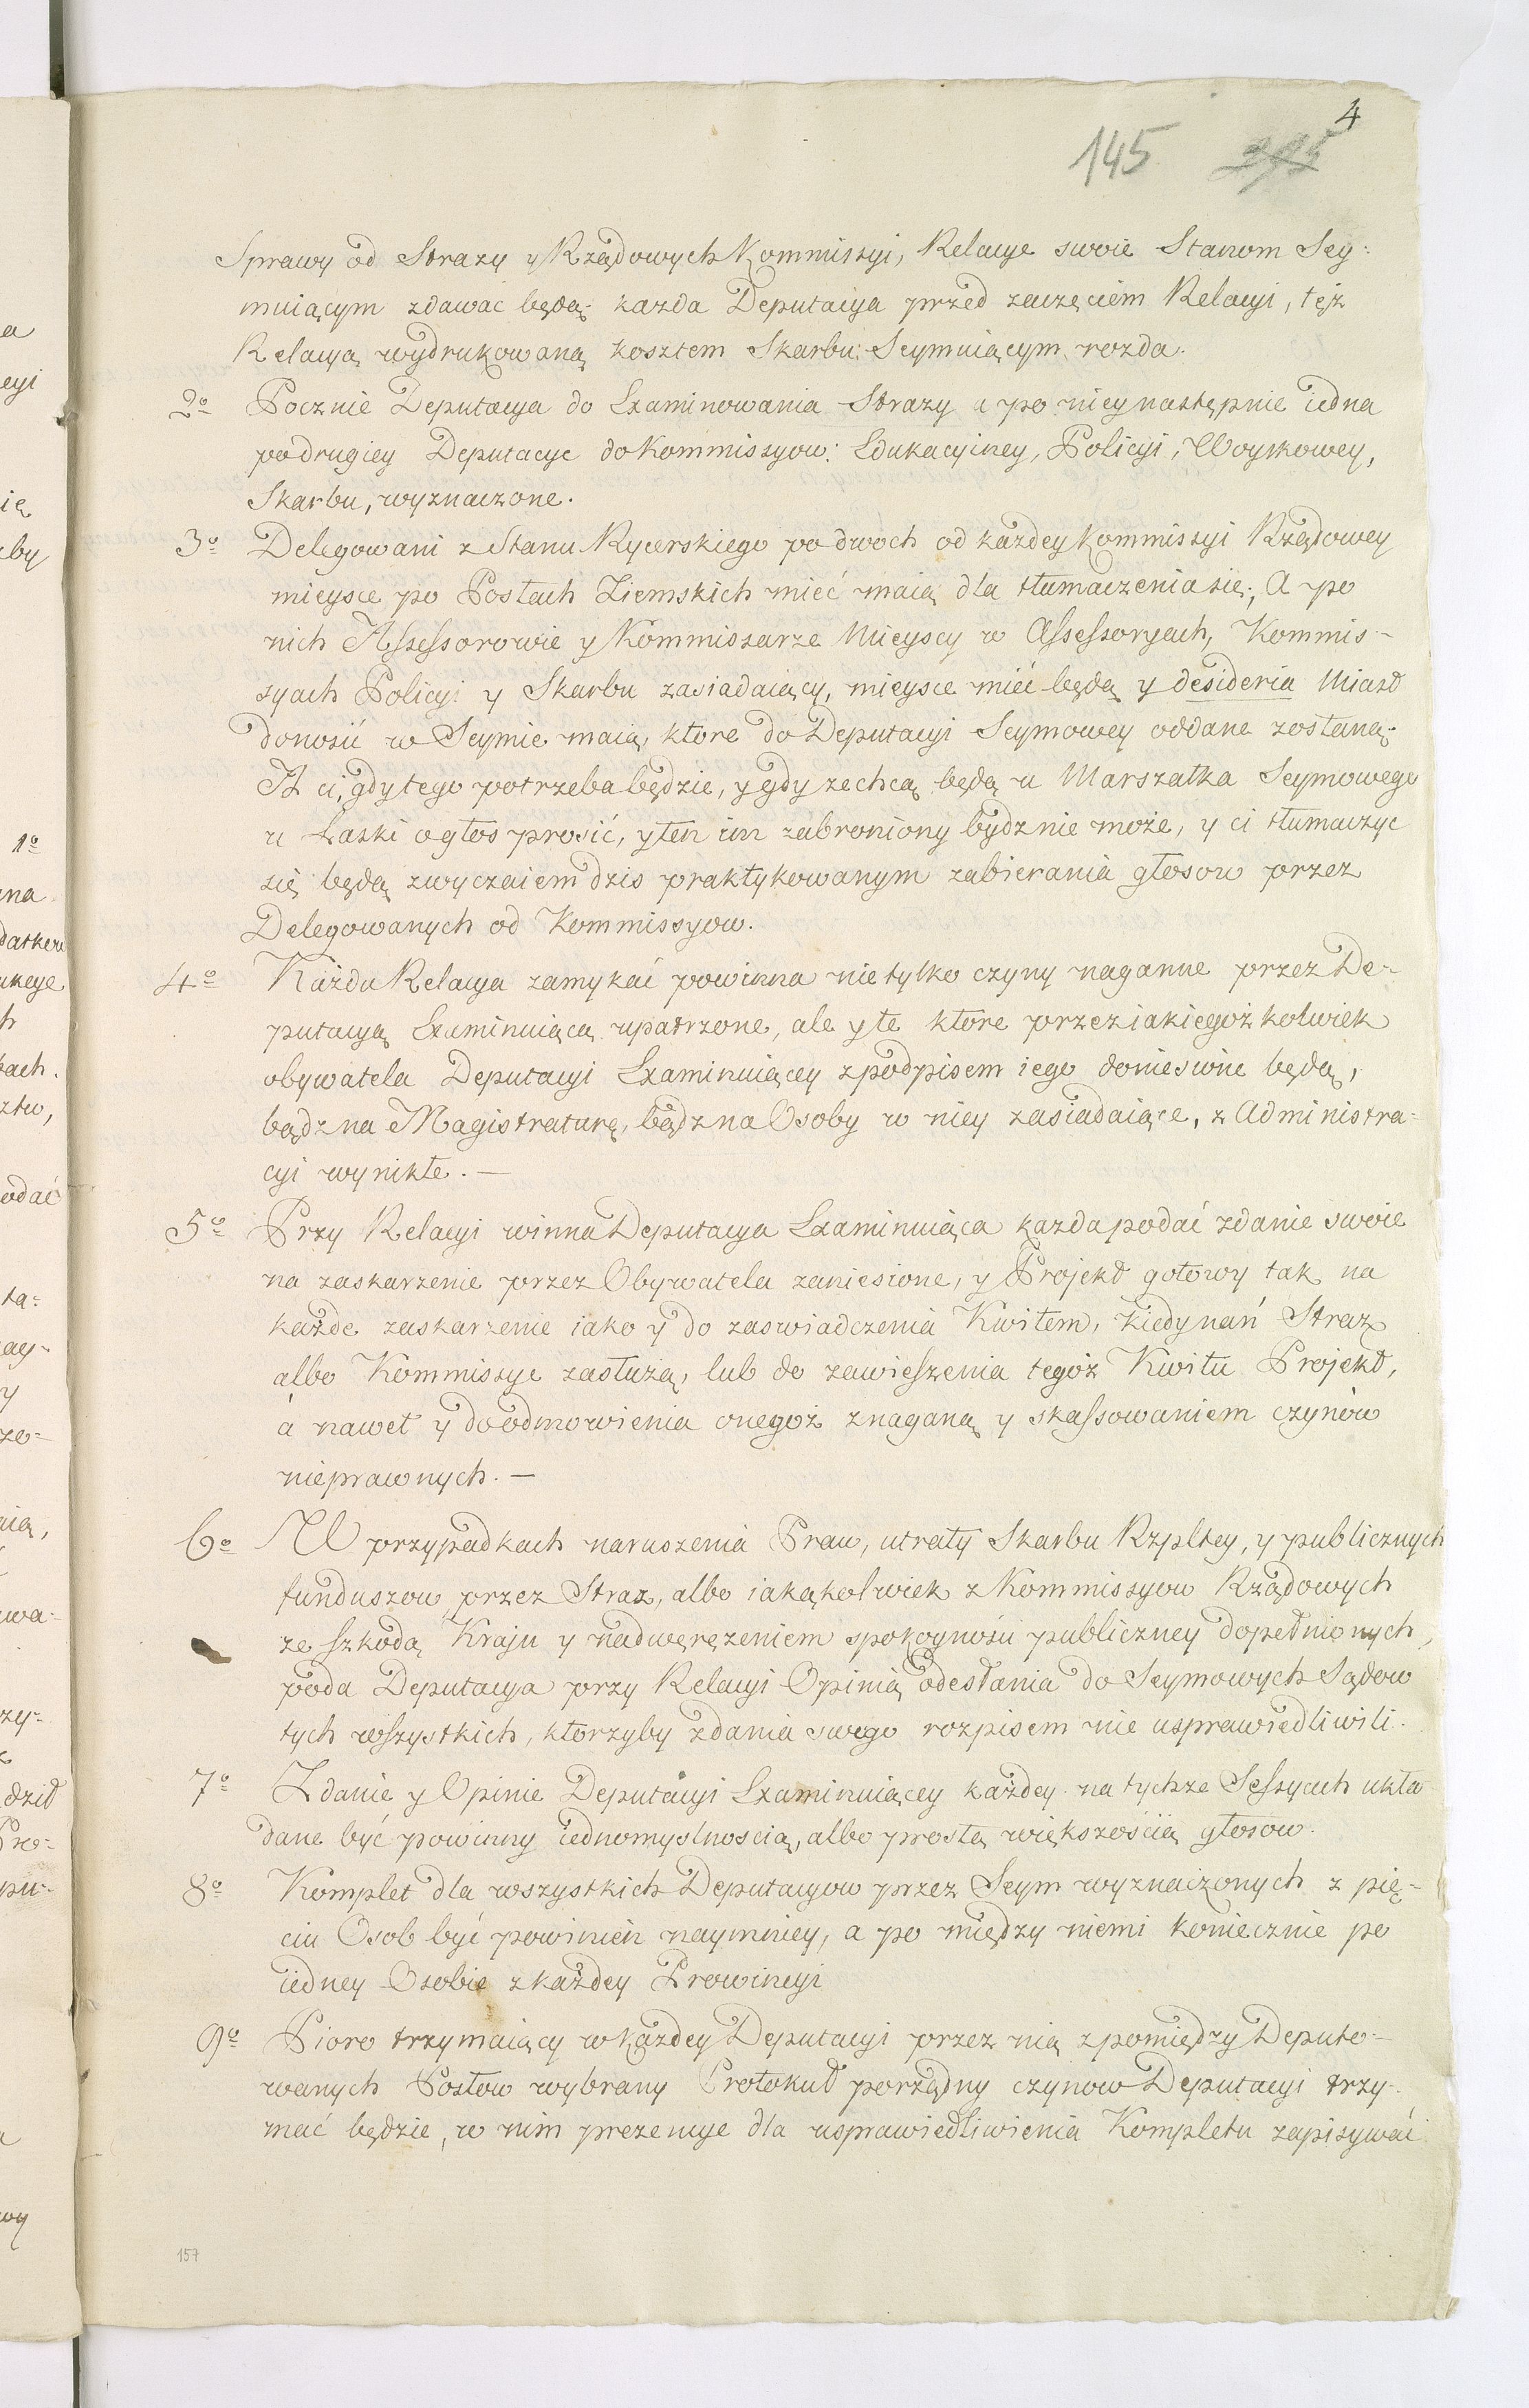 4
145 315
Sprawy od Strazy y Rządowych Kommissyi, Relacye swoie Stanom Sey:
muiącym zdawać będą; kazda Deputacya przed zaczęciem Relacyi, też
Relacyą wydrukowaną kosztem Skarbu Seymuiącym rozda.
2o Pocznie Deputacya do Examinowania Strazy a po niey następnie iedna
po drugiey Deputacye do Kommissyow: Edukacyiney, Policyi, Woyskowey,
Skarbu, wyznaczone.
3o Delegowani z Stanu Rycerskiego po dwoch od każdey Kommissyi Rządowey
mieysce po Posłach Ziemskich mieć maią dla tłumaczenia się; A po
nich Assessorowie y Kommissarze Mieyscy w Assessoryach, Kommis-
syach Policyi y Skarbu zasiadaiący, mieysce mieć będą y desideria Miast
donosić w Seymie maią, ktore do Deputacyi Seymowey oddane zostaną.
A ci, gdy tego potrzeba będzie, y gdy zechcą będą u Marszałka Seymowego
u Laski o głos prosić, y ten im zabroniony bydz nie może, y ci tłumaczyc
się będą zwyczaiem dzis praktykowanym zabierania głosow przez
Delegowanych od Kommissyow.
4o Każda Relacya zamykać powinna nie tylko czyny naganne przez De-
putacyą Examinuiącą upatrzone, ale y te ktore przez iakiegoż kolwiek
obywatela Deputacyi Examinuiącey z podpisem iego doniesione będą,
bądz na Magistraturę, bądz na Osoby w niey zasiadaiące, z Administra-
cyi wynikłe. —
5o Przy Relacyi winna Deputacya Examinuiąca kazda podać zdanie swoie
na zaskarzenie przez Obywatela zaniesione, y Projekt gotowy tak na
każde zaskarzenie iako y do zaswiadczenia Kwitem, kiedy nań Straz
albo Kommissye zasłużą, lub do zawieszenia tegoż Kwitu Projekt,
á nawet y do odmowienia onegoż z naganą y skassowaniem czynów
nieprawnych. —
6o W przypadkach naruszenia Praw, utraty Skarbu Rzpltey, y publicznych
funduszow przez Straz, albo iakąkolwiek z Kommissyow Rządowych
ze szkodą Kraju y nadwerężeniem spokoynosci publiczney dopełnionych,
poda Deputacya przy Relacyi Opinią odesłania do Seymowych Sądow
tych wszystkich, ktorzyby zdania swego rozpisem nie usprawiedliwili.
7o Zdanie y Opinie Deputacyi Examinuiącey każdey na tychze Sessyach ukła
dane być powinny iednomyslnoscią, albo prostą większością głosow.
8o Komplet dla wszystkich Deputacyow przez Seym wyznaczonych z pię-
ciu Osob być powinien naymniey, a po między niemi koniecznie po
iedney Osobie z każdey Prowincyi
9o Pioro trzymaiący w każdey Deputacyi przez nią z pomiędzy Deputo-
wanych Posłow wybrany Protokuł porządny czynow Deputacyi trzy-
mać będzie, w nim prezencye dla usprawiedliwienia Kompletu zapisywać
157